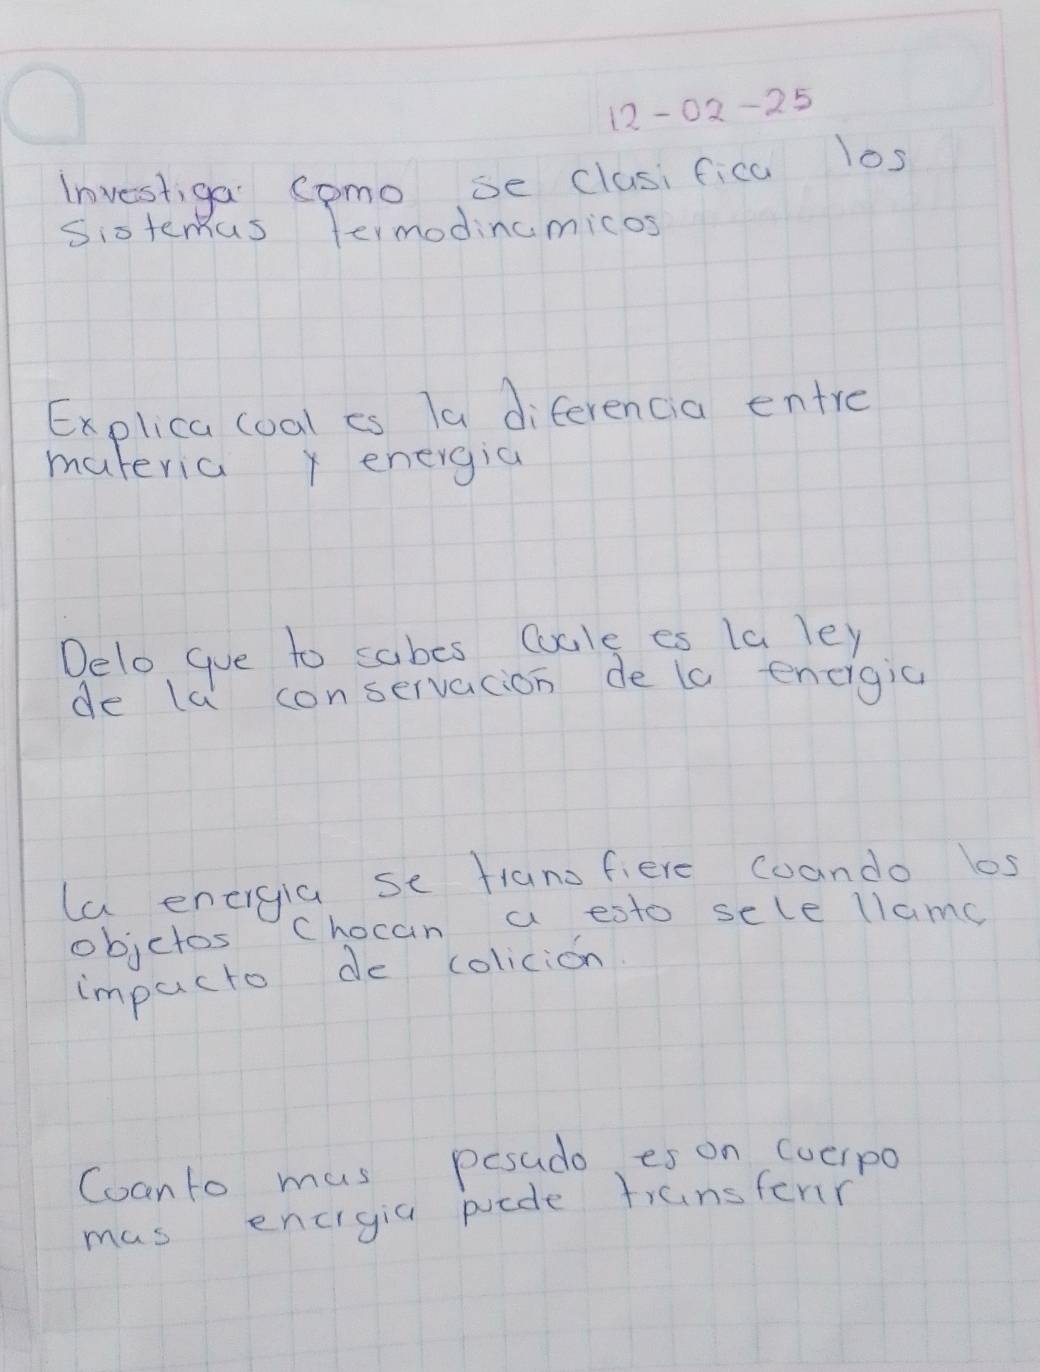 12-02-25
Investiga como se clasifica los
sistemas termodinamicos
Explica coal es la diferencia entre
materia y energia
Delo que to sabes cuale es la ley
de la conservación de la energia
la energia se transfiere coando los
objetos chocan a esto sele llama
impacto de colición.
Coanto mas pesado es on cuerpo
mas energia puede transferir